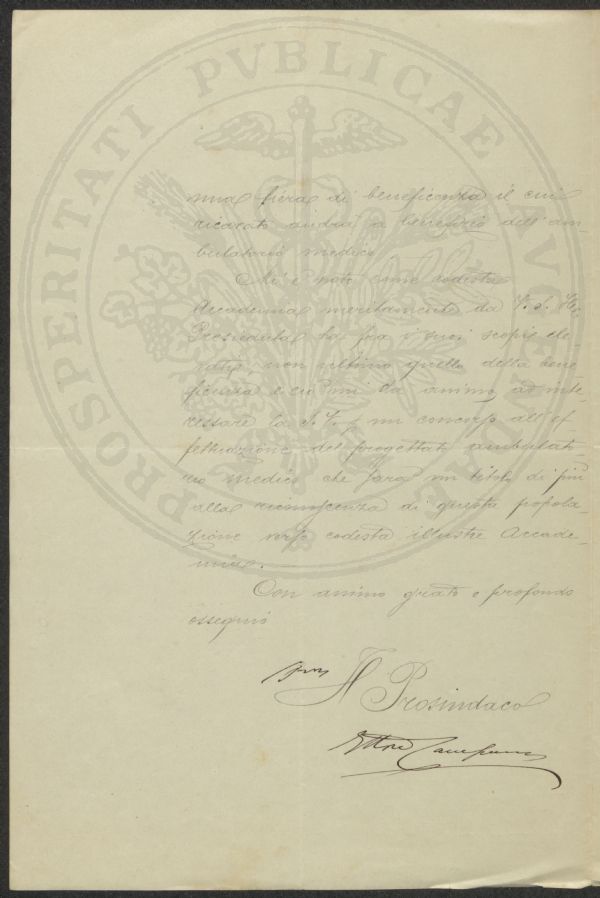 PROSPERITATI PVBLICAE AVGENDAE
una fiera di beneficenza il cui
ricavato andrà a beneficio dell'am-
bulatorio medico
Mi è noto come codesta
Accademia meritamente da V. S. Ill.
Presieduta ha fra i suoi scopi ele-
vati, non ultimo quello della bene-
ficenza e ciò mi dà animo ad inte-
ressare la S. V. un concorso all'ef-
fettuazione del progettato ambulato-
rio medico che sarà un titolo di più
alla riconoscenza di questa popola-
zione verso codesta illustre Accade-
mia.
Con animo grato e profondo
ossequio
Il Prosindaco
Ettore